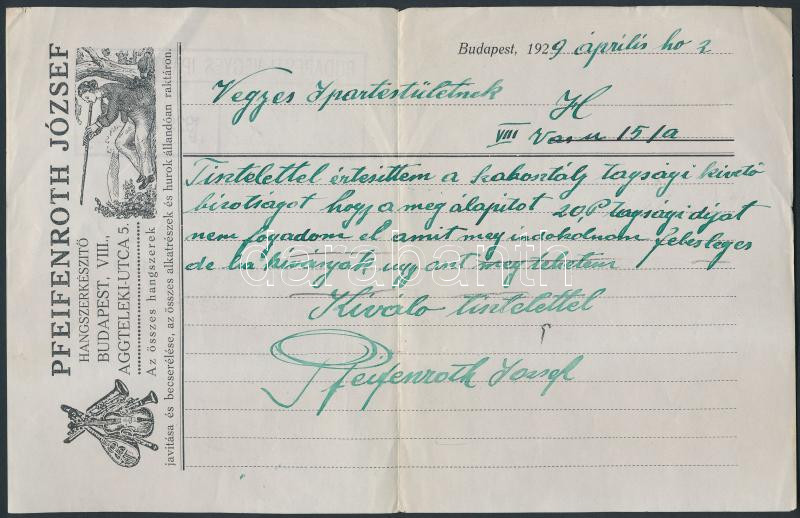 PFEIFENROTH JÓZSEF
HANGSZERKÉSZITŐ
BUDAPEST, VIII.,
AGGTELEKI-UTCA 5.
Az összes hangszerek
javitása és becserélése, az összes alkatrészek és hurok állandóan raktáron.
Budapest, 1929 április ho 2
Vegyes Ipartestületnek
H
VIII Vas u 15/a
Tisztelettel értesittem a szakosztály tagsági kivető
bizotságot hogy a meg álapitot 20,P tagsági dijat
nem fogadom el amit meg indokolnom felesleges
de ha kivánják ugy azt meg tehetem
Kiváló tisztelettel
Pfeifenroth József
darabanth